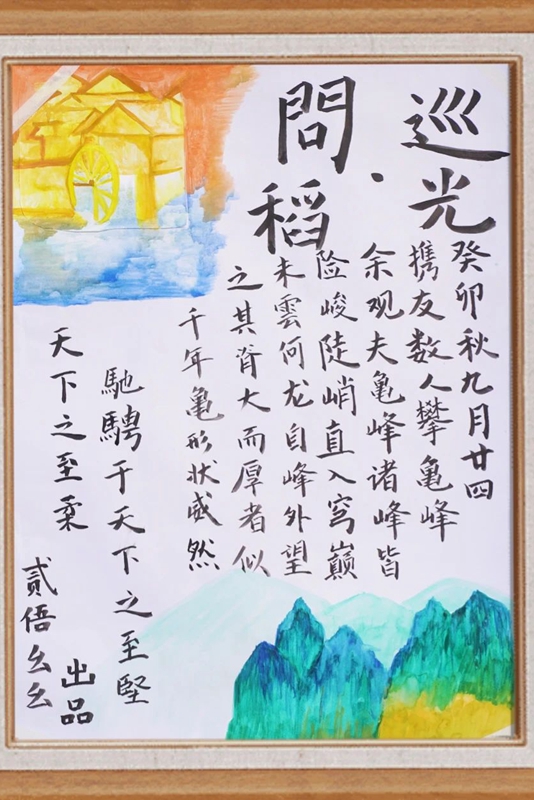 巡光·
問稻
癸卯秋九月廿四
携友数人攀亀峰
余观夫亀峰诸峰皆
险峻陡峭直入穹巅
未雲何龙自峰外望
之其脊大而厚者似
千年亀形状威然
天下之至柔
馳騁于天下之至堅
贰俉幺幺
出品